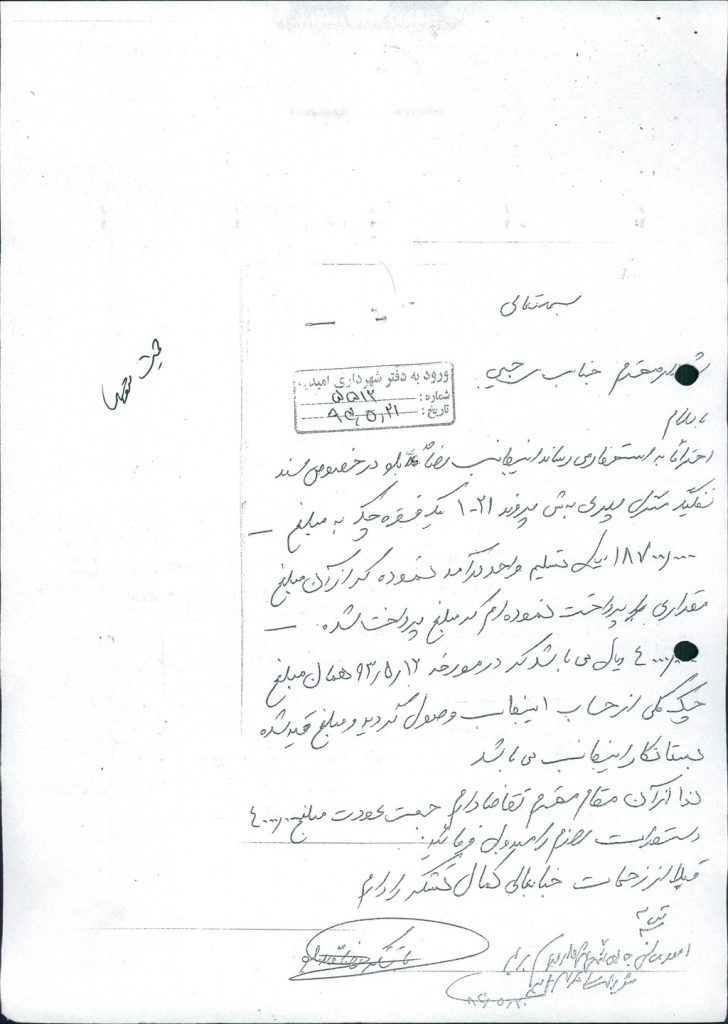 بسمه تعالی
شهردار محترم جناب رجبی
ورود به دفتر شهرداری امیدیه
شماره: ۵۵۱۲
تاریخ: ۹۴,۵,۲۱
با سلام
احتراماً به استحضار می رساند اینجانب رضا در خصوص سند
منزل به ش پرونده ۲۱-۱ یک فقره چک به مبلغ
۱۸۷۰۰,۰۰۰ ریال تسلیم واحد درآمد نموده که از آن مبلغ
مقداری پرداخت نموده ام که مبلغ پرداخت شده
۴۰۰۰,۰۰۰ ریال می باشد که در مورخه ۹۳,۵,۱۲ همان مبلغ
چک کلی از حساب اینجانب وصول گردید و مبلغ قید شده
بستانکار اینجانب می باشد
لذا از آن مقام محترم تقاضا دارم جهت عودت مبلغ ۴۰۰۰,۰۰۰
دستورات لازم را مبذول فرمائید.
قبلا از زحمات جنابعالی کمال تشکر را دارم
با تشکر رضا